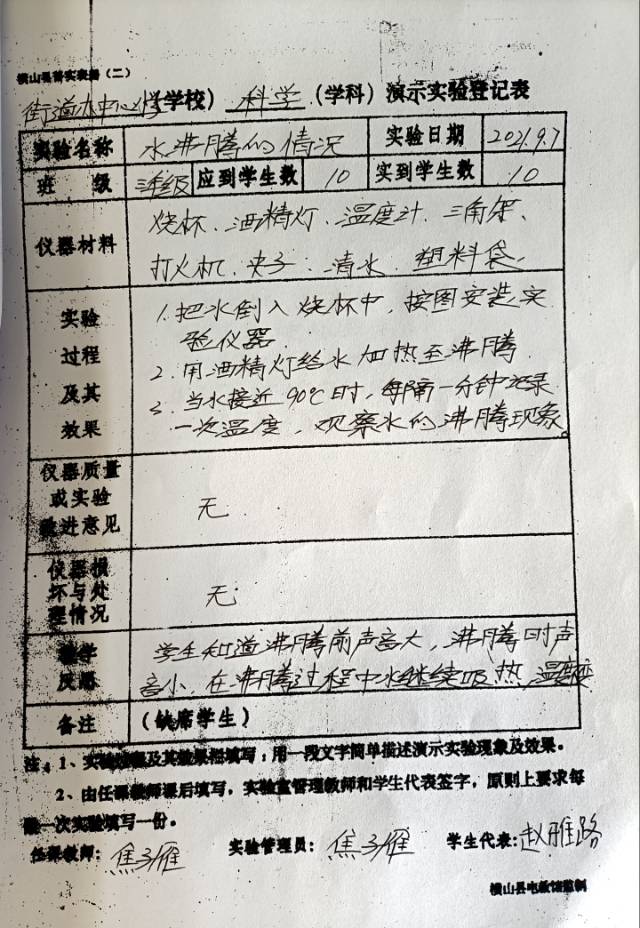 横山县普实表册（二）
街道办中心小学（学校） 科学 （学科）演示实验登记表
实验名称 水沸腾的情况 实验日期 2021.9.7
班 级 三年级 应到学生数 10 实到学生数 10
仪器材料
烧杯、酒精灯、温度计、三角架、
打火机、夹子、清水、塑料袋
实验
过程
及其
效果
1. 把水倒入烧杯中，按图安装实
验仪器.
2. 用酒精灯给水加热至沸腾
3. 当水接近90℃时，每隔一分钟记录
一次温度，观察水的沸腾现象。
仪器质量
或实验
改进意见
无.
仪器损
坏与处
理情况
无.
教学
反思
学生知道沸腾前声音大，沸腾时声
音小.在沸腾过程中水继续吸热,温度
备注 （缺席学生）
注：1、实验过程及其效果栏填写：用一段文字简单描述演示实验现象及效果。
2、由任课教师课后填写，实验室管理教师和学生代表签字，原则上要求每
做一次实验填写一份。
任课教师：焦子雁 实验管理员：焦子雁 学生代表：赵雅路
横山县电教馆监制